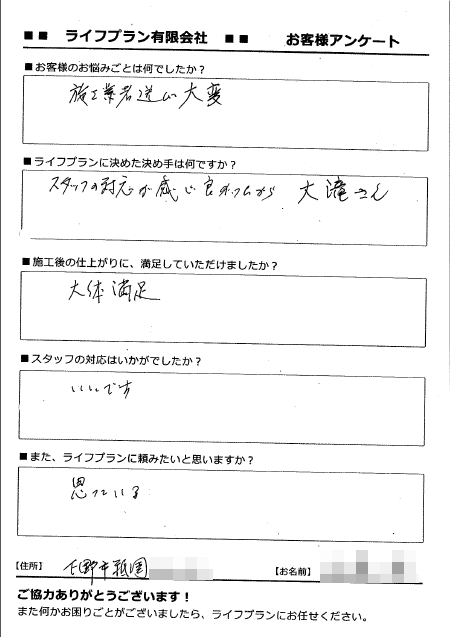 ■■ ライフプラン有限会社 ■■ お客様アンケート
■お客様のお悩みごとは何でしたか？
施工業者選び大変
■ライフプランに決めた決め手は何ですか？
スタッフの対応が感じ良かったから 大滝さん
■施工後の仕上がりに、満足していただけましたか？
大体満足
■スタッフの対応はいかがでしたか？
いいです
■また、ライフプランに頼みたいと思いますか？
思っている
【住所】
【お名前】
ご協力ありがとうございます！
また何かお困りごとがございましたら、ライフプランにお任せください。